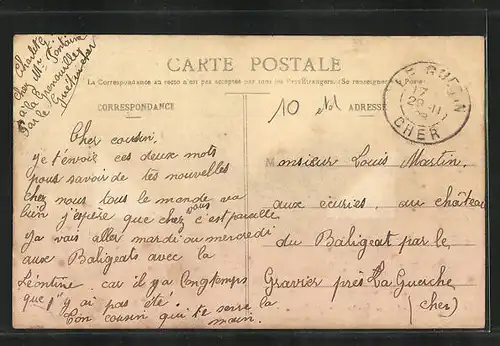 Charlet G.
chez Mr Fontaine
à la Grenouille
Par le Guétin Cher
CARTE POSTALE
La Correspondance au recto n'est pas acceptée par tous les Pays étrangers. (Se renseigner à la Poste)
CORRESPONDANCE
10
ADRESSE
LE GUÉTIN
17
22-11
CHER
Cher cousin.
je t'envoie ces deux mots
pous savoir de tes nouvelles
chez nous tous le monde va
bien j'espère que chez vous c'est pareille
je vais aller mardi ou mercredi
aux Baligeats avec la
Léontine. car il y a longtemps
que j'y ai pas été.
Ton cousin qui te serre la
main.
Monsieur Louis Martin.
aux écuries. au château
du Baligeat par le
Gravier près La Guerche
(Cher)